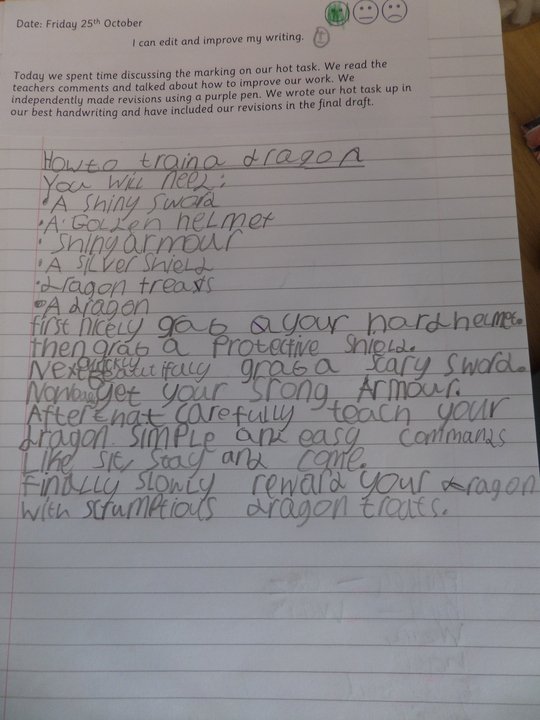 Date: Friday 25th October
I can edit and improve my writing.
Today we spent time discussing the marking on our hot task. We read the
teachers comments and talked about how to improve our work. We
independently made revisions using a purple pen. We wrote our hot task up in
our best handwriting and have included our revisions in the final draft.
How to train a dragon
You will need:
• A shiny sword
• A Golden helmet
• Shiny armour
• A silver shield
• dragon treats
• A dragon
first nicely grab a your hard helmet.
then grab a Protective Shield.
Next beautifully grab a scary sword.
Now get your srong Armour.
After that carefully teach your
dragon simple and easy commans
Like sit, stay and come.
finally slowly reward your dragon
with scrumptious dragon treats.